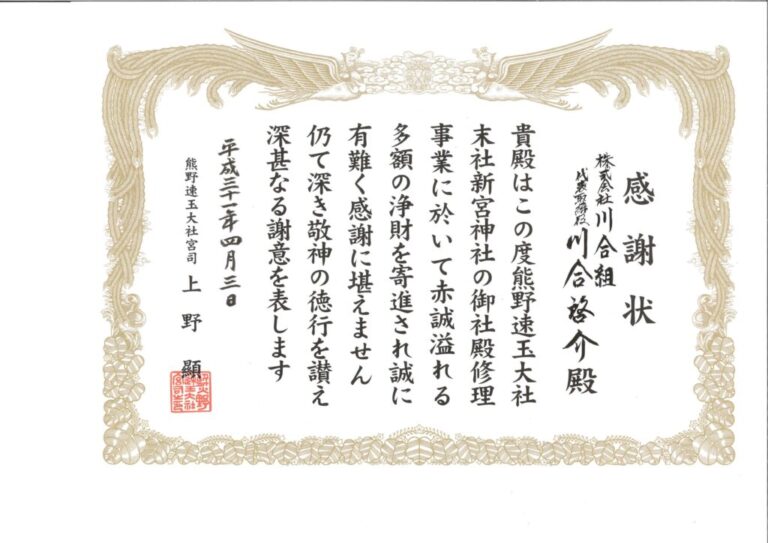 感謝状
株式会社川合組
代表取締役 川合啓介殿
貴殿はこの度熊野速玉大社
末社新宮神社の御社殿修理
事業に於いて赤誠溢れる
多額の浄財を寄進され誠に
有難く感謝に堪えません
仍て深き敬神の徳行を讃え
深甚なる謝意を表します
平成三十一年四月三日
熊野速玉大社宮司 上野顯